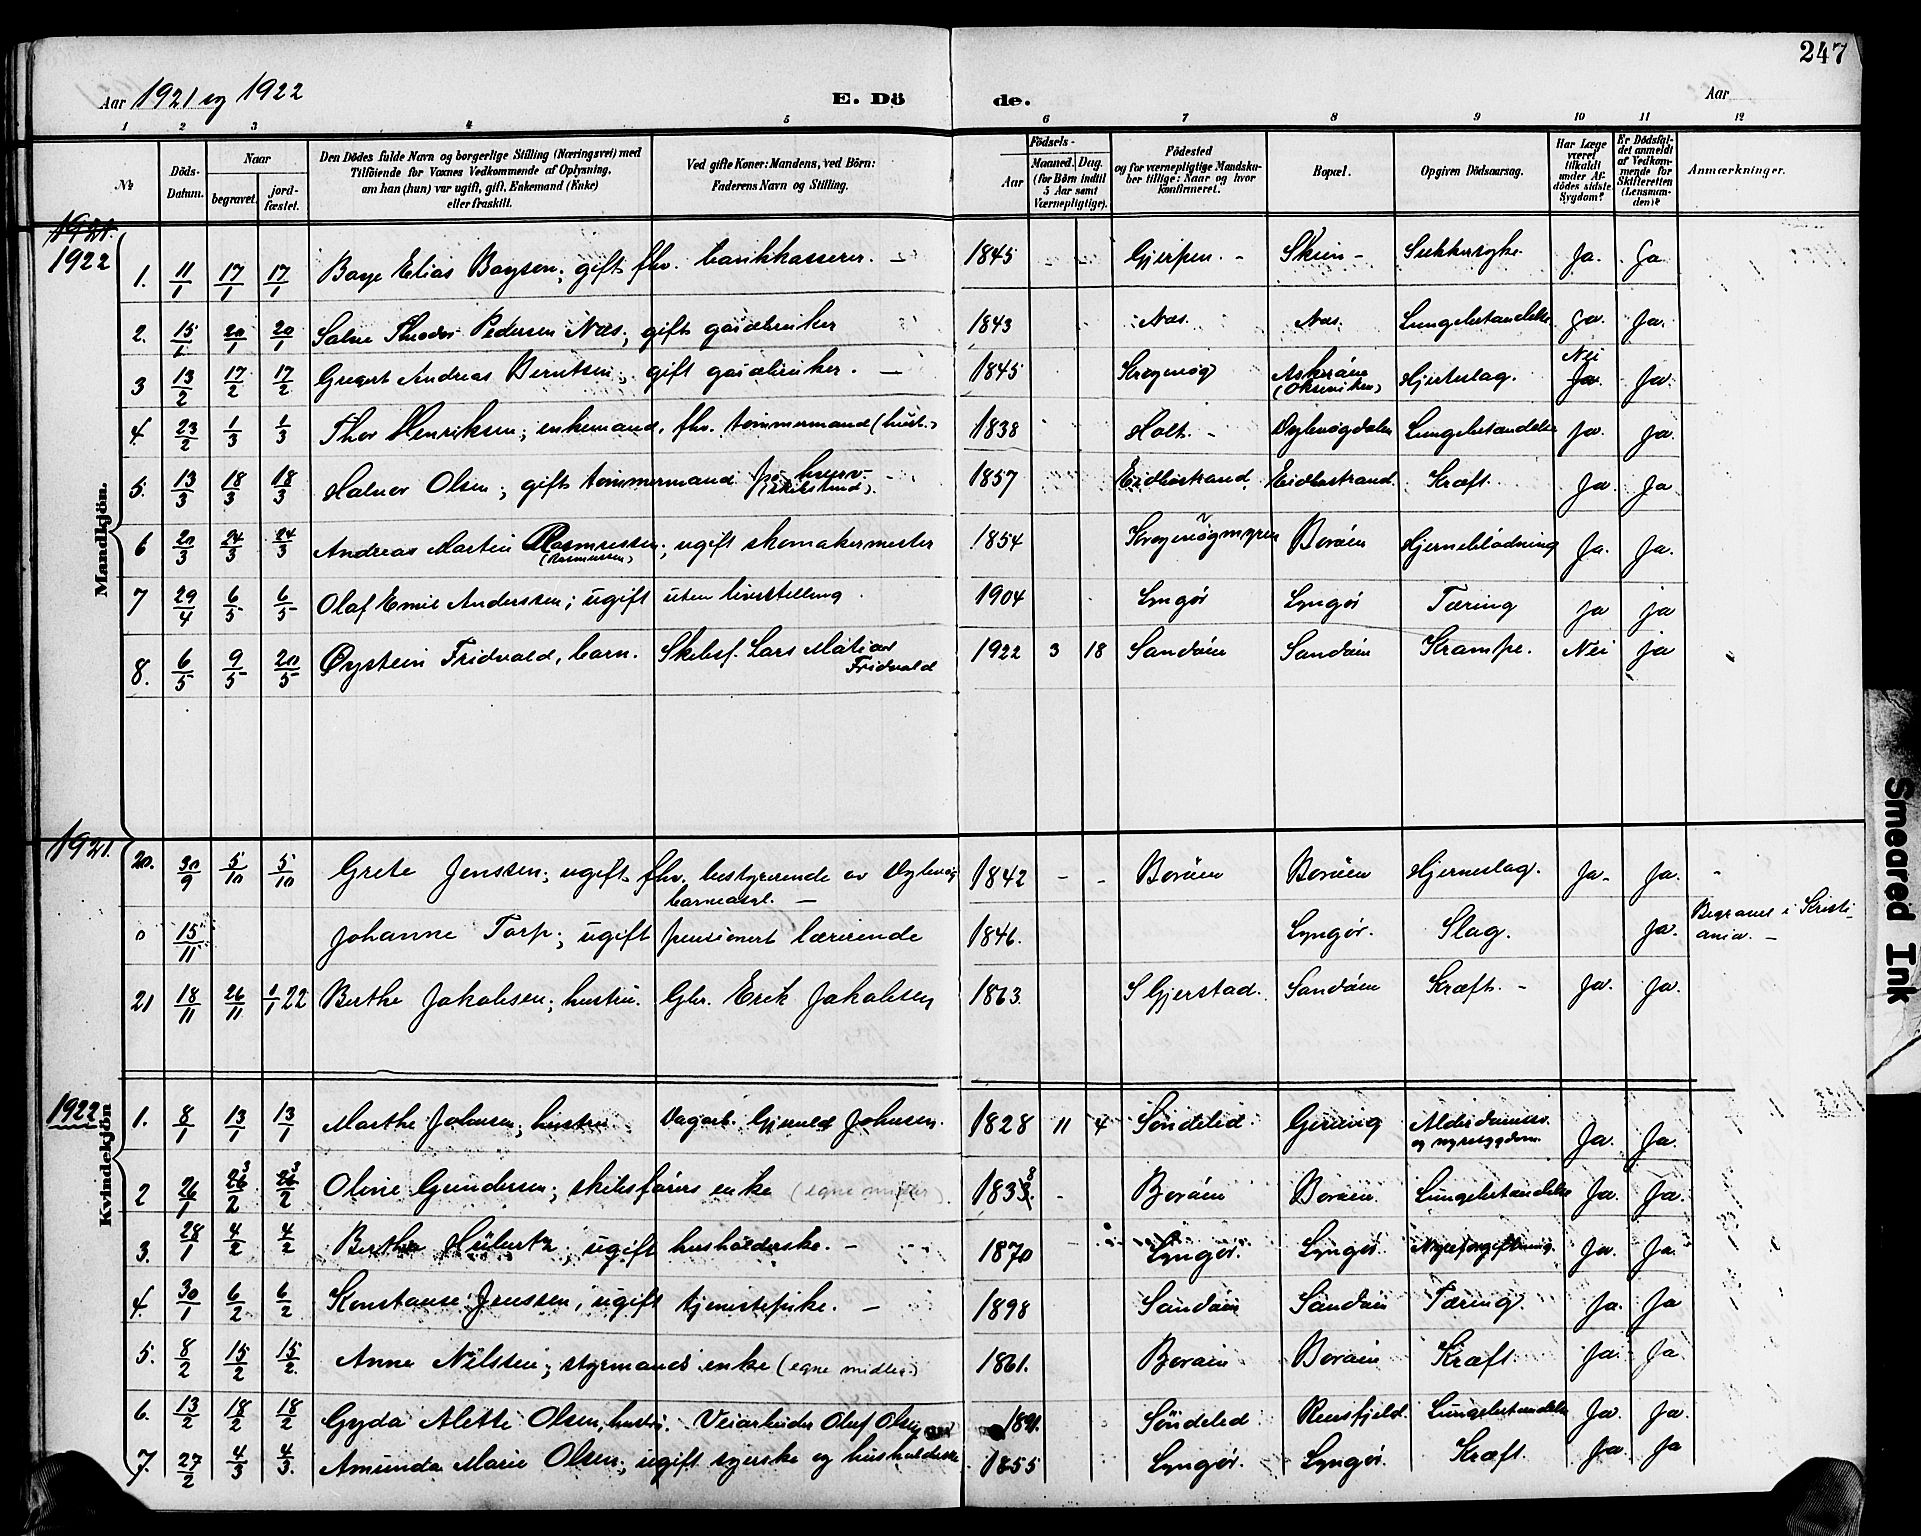 247
Aar 1921 og 1922 E. Dö de. Aar
1 2 3 4 5 6 7 8 9 10 11 12
№ Döds-Datum. Naar begravet. jord-fæstet. Den Dödes fulde Navn og borgerlige Stilling (Næringsvei) med Tilföiende for Voxnes Vedkommende af Oplysning, om han (hun) var ugift, gift, Enkemand (Enke) eller fraskilt. Ved gifte Koner: Mandens, ved Börn: Faderens Navn og Stilling. Födsels- Aar Maaned. Dag. (for Börn indtil 5 Aar samt Værnepligtige). Födested og for værnepligtige Mandskaber tillige: Naar og hvor Konfirmeret. Bopæl. Opgiven Dödsaarsag. Har Læge været tilkaldt under Afdödes sidste Sygdom? Er Dödsfaldet anmeldt af Vedkommende for Skifteretten (Lensmanden)? Anmærkninger.
1921.
1922
Mandkjön.
1. 11/1 17/1 17/1 Baye Elias Boysen; gift fhv. bankkasserer. — 1845 Gjerpen. - Skien - Sukkersyke. Ja. Ja
2. 15/1 20/1 20/1 Salve Theodor Pedersen Næs; gift gårdbruker 1843 Næs. Næs. Lungebetændelse Ja. Ja.
3 13/2 17/2 17/2 Gregert Andreas Berntsen; gift gårdbruker. — 1845 Askerøen Hjerteslag. Nei Ja. Ja.
4. 23/2 1/3 1/3 Thor Henriksen; enkemand, fhv. tømmermand 1838 Holt. - Dybvaagdalen Lungebetændelse Ja. Ja.
5. 13/3 18/3 18/3 Halvor Olsen; gift tømmermand 1857 Eidbostrand. Eidbostrand. Kræft. Ja. Ja
6 20/3 24/3 24/3 Andreas Martin Rasmussen; ugift skomakermester 1854 Borøen Hjerneblødning Ja. Ja.
(Rasmussen)
7 29/4 6/5 6/5 Olaf Emil Anderssen; ugift uten livsstilling. 1904 Lyngør Lyngør Tæring ja ja
8. 6/5 9/5 20/5 Øystein Fridvald, barn. Skibsf. Lars Matias Fridvald 1922 3 18 Sandøen Sandøen Krampe. Nei ja
1921.
20. 30/9 5/10 5/10 Grete Jenssen; ugift fhv. bestyrerinde av Dybvåg barneasyl. — 1842 - - Borøen Borøen Hjerneslag. Ja. Ja.
0 15/11 Johanne Torp; ugift pensionert lærerinde 1846. Lyngør. Slag. Ja. Begravet i Kristiania. —
21 18/11 26/11 1/1 22 Berthe Jakobsen; hustru. Gbr. Erik Jakobsen 1863. S Gjerstad. Sandøen Kræft. - Ja. Ja.
1922
Kvindekjön
1. 8/1 13/1 13/1 Marthe Johnsen; hustru. Dagarb. Johnsen. 1828 11 4 Søndeled. Gjerdvig Ja. Ja.
2 26/1 26/2 3 26/2 3 Oline Gundersen; skibsførers enke (egne midler) 1833 8 Borøen Borøen Lungebetændelse Ja. Ja.
3. 28/1 4/2 4/2 Berthe Hübertz; ugift husholderske. — 1870 Lyngør. Lyngør. Ja. Ja.
4. 30/1 6/2 6/2 Konstanse Jenssen; ugift tjenestepike. — 1898 Sandøen Sandøen Tæring. Ja. Ja
5. 8/2 15/2 15/2 Anne Nilsen; styrmands enke (egne midler) 1861. Borøen Borøen Kræft. Ja. Ja.
6. 13/2 18/2 18/2 Gyda Alette Olsen, hustru. Veiarbeider Oluf Olsen 1891. Søndeled Rensfjeld. Lungebetændelse Ja. Ja.
7. 27/2 4/3 4/3 Amunda Marie Olsen; ugift syerske og husholderske 1855 Lyngør. Lyngør. Kræft. Ja. Ja
Smeared Ink